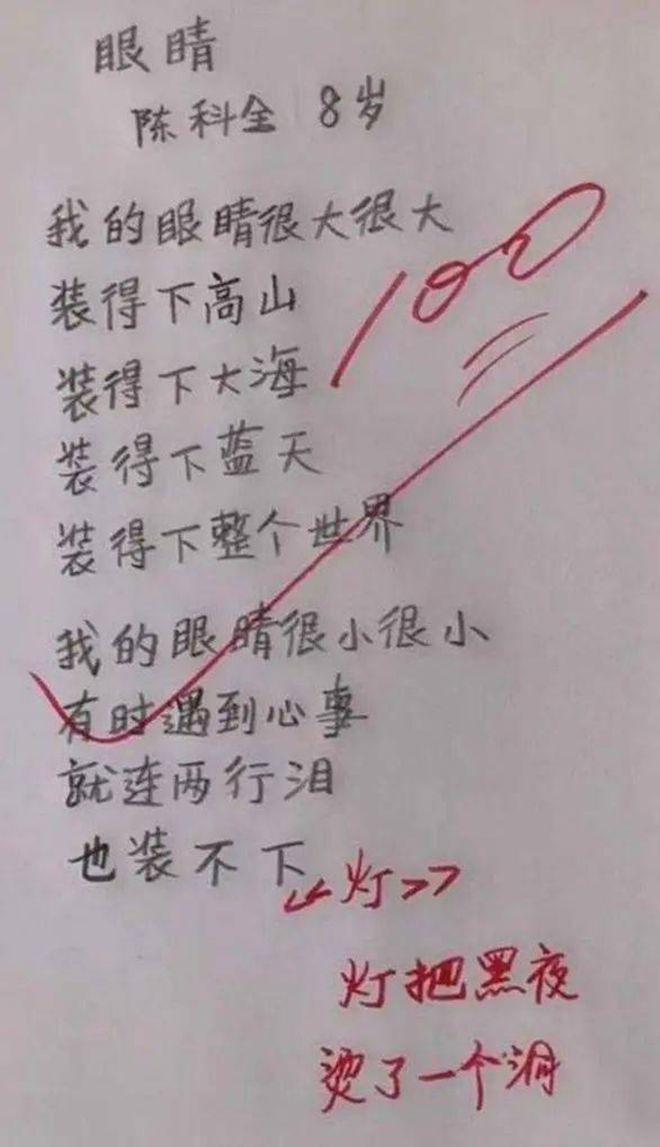 眼睛
陈科全 8岁
我的眼睛很大很大
装得下高山
装得下大海
装得下蓝天
装得下整个世界
我的眼睛很小很小
有时遇到心事
就连两行泪
也装不下
100
《灯》
灯把黑夜
烫了一个洞